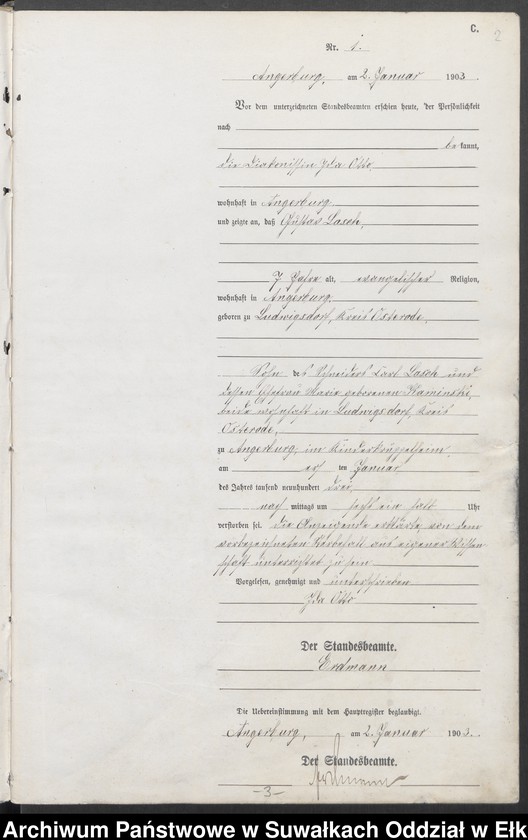 C.
2
Nr. 1.
Angerburg, am 2. Januar 1903.
Vor dem unterzeichneten Standesbeamten erschien heute, der Persönlichkeit
nach
be kannt,
die Diakonissin Ida Otto
wohnhaft in Angerburg
und zeigte an, daß Gustav Lasch,
7 Jahre alt, evangelischer Religion,
wohnhaft in Angerburg
geboren zu Ludwigsdorf, Kreis Osterode,
Sohn des Schneiders Carl Lasch und
dessen Ehefrau Marie geborenen Kaminski,
beide wohnhaft in Ludwigsdorf, Kreis
Osterode,
zu Angerburg, im Kinderkrüppelheim,
am ersten Januar
des Jahres tausend neunhundert drei
nach mittags um sechs ein halb Uhr
verstorben sei. Die Anzeigende erklärte von dem
vorbezeichneten Sterbefall aus eigener Wissen-
schaft unterrichtet zu sein.
Vorgelesen, genehmigt und unterschrieben
Ida Otto
Der Standesbeamte.
Erdmann
Die Uebereinstimmung mit dem Hauptregister beglaubigt.
Angerburg, am 2. Januar 1903.
Der Standesbeamte.
Erdmann
-3-
Archiwum Państwowe w Suwałkach Oddział w Ełk